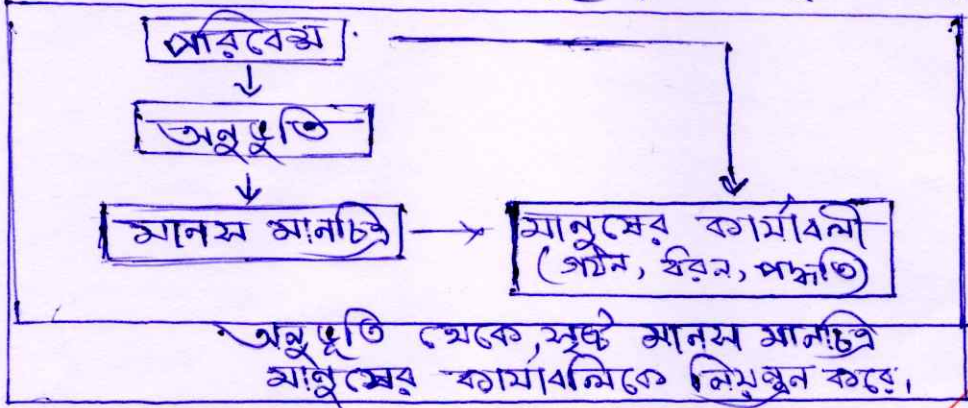 পরিবেশ
অনুভূতি
মানস মানচিত্র
মানুষের কার্যাবলী
(গঠন, ধরন, পদ্ধতি)
অনুভূতি থেকে সৃষ্ট মানস মানচিত্র
মানুষের কার্যাবলিকে নিয়ন্ত্রন করে।